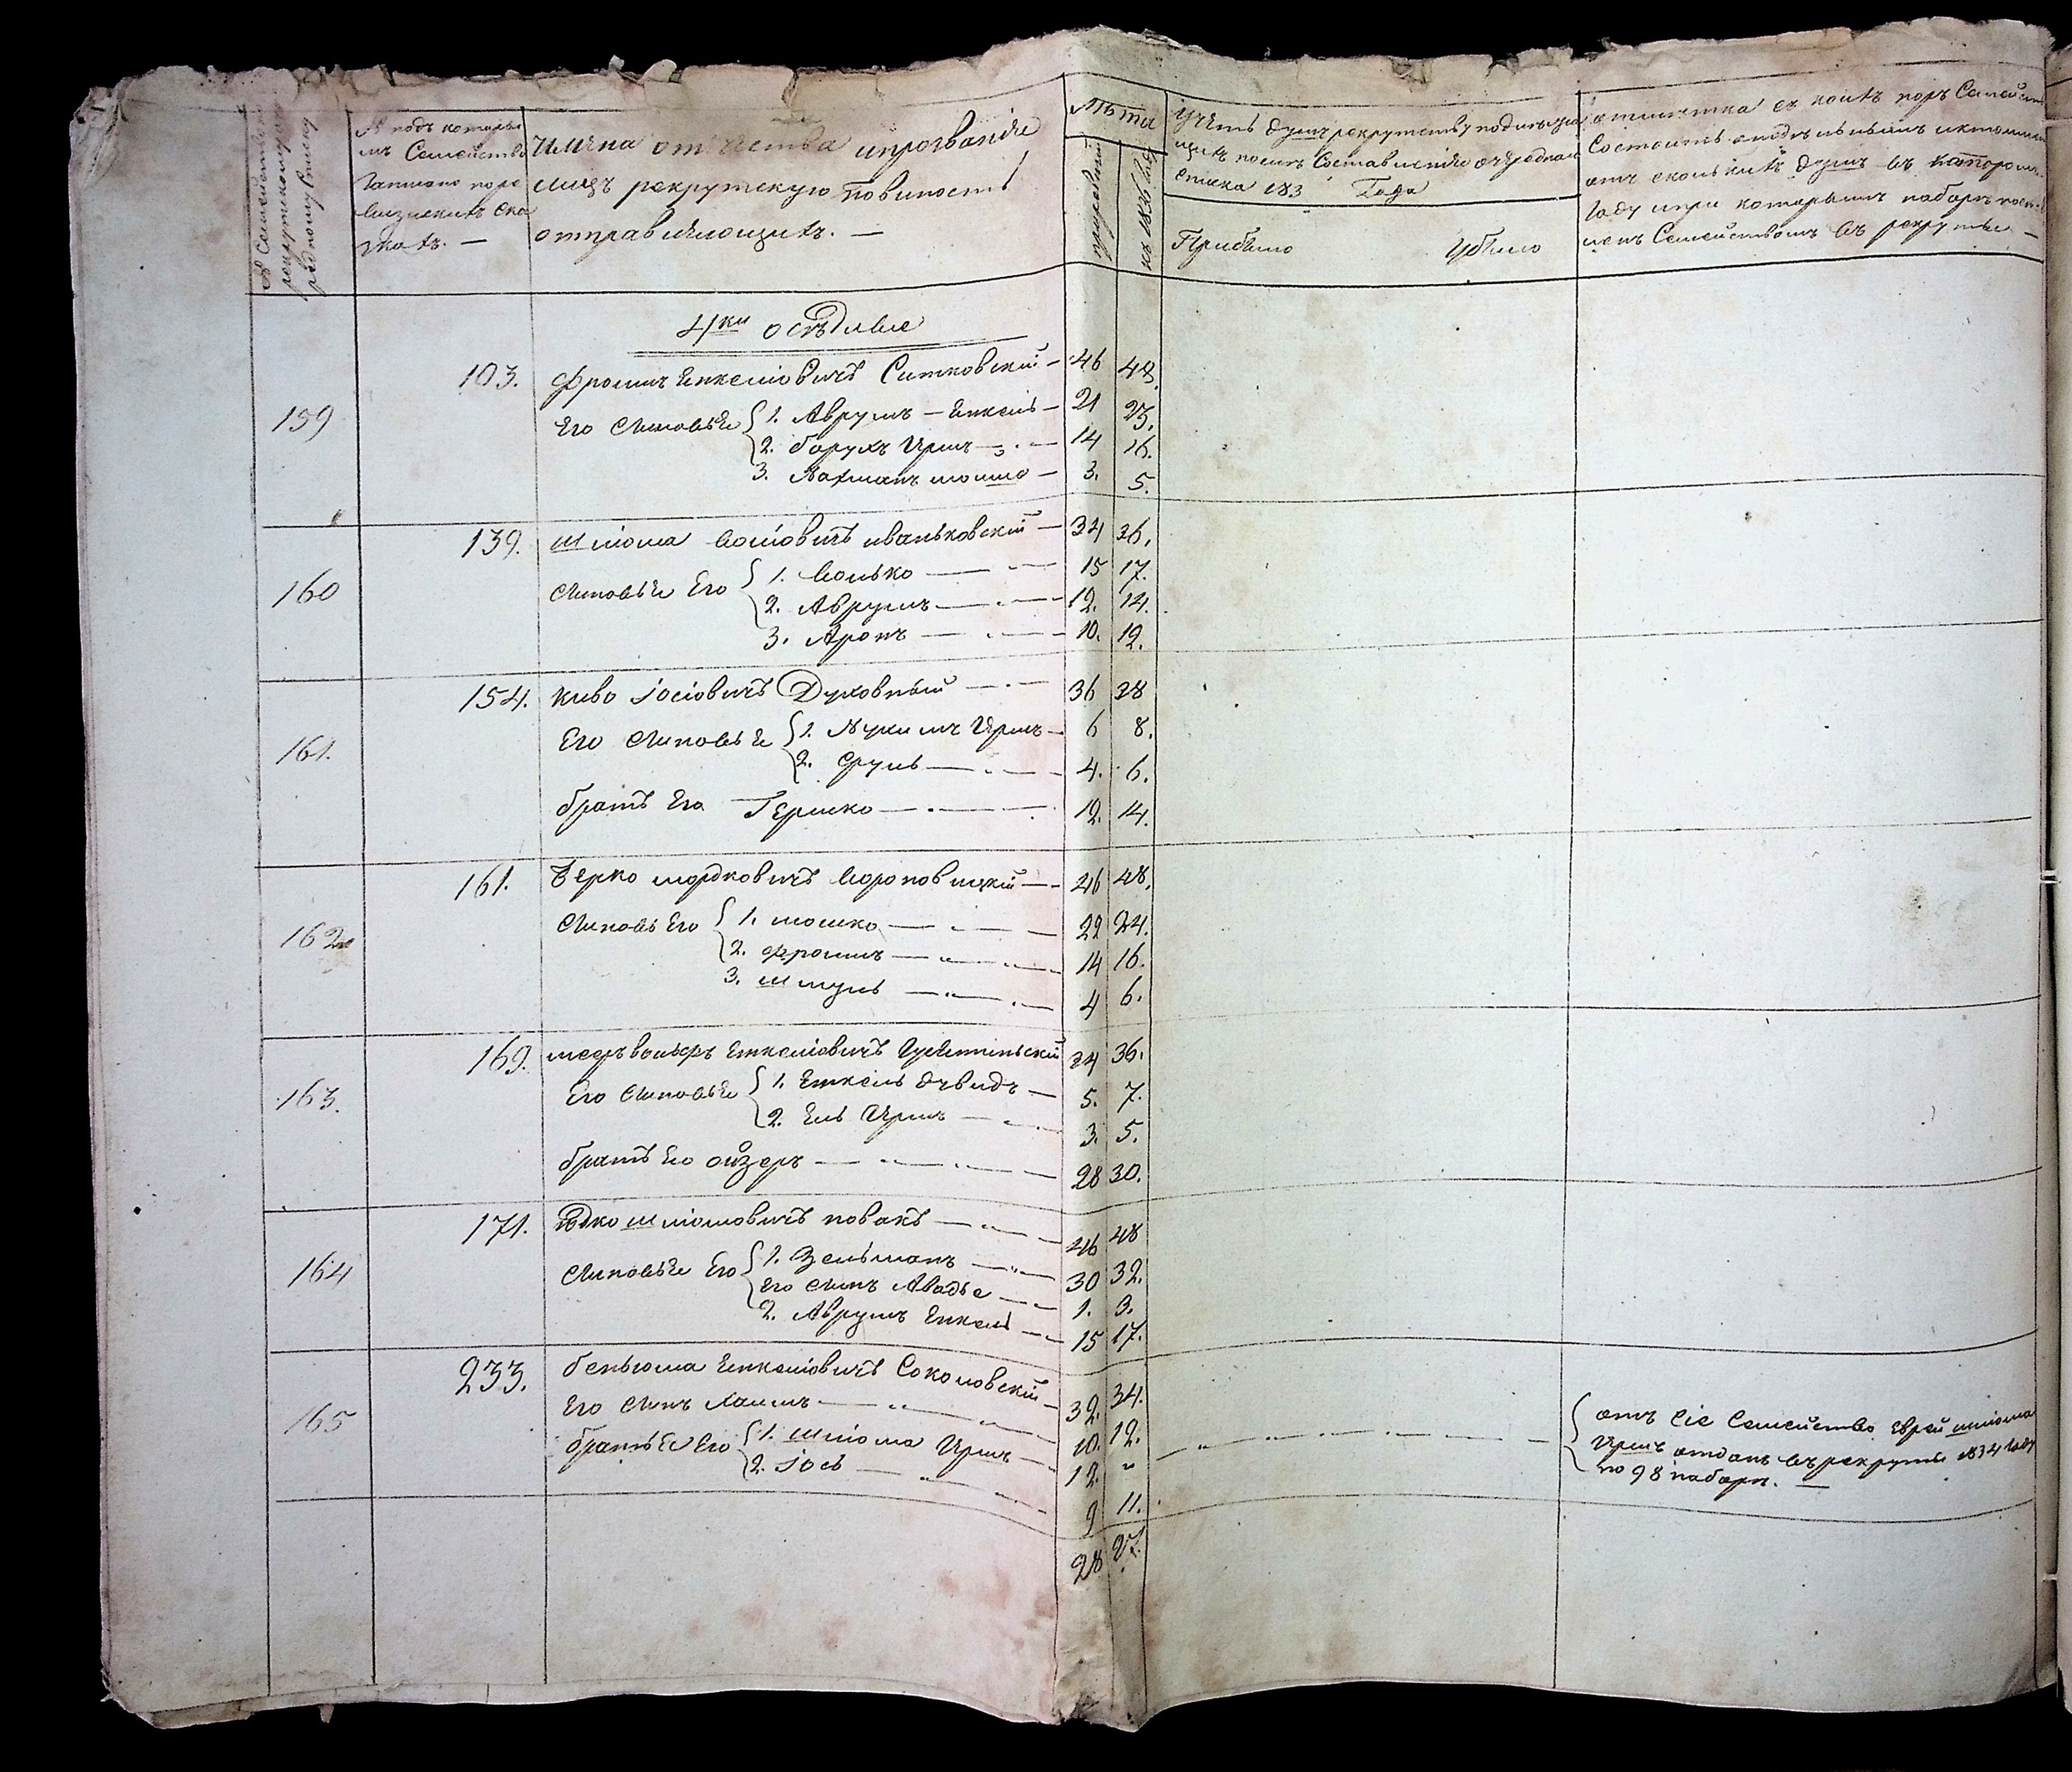 № Семейства по рекрутскому очередному списку
№ подъ которы
мъ Семейство
Записано поре
визскихъ ска
зкахъ. —
Имена отечества ипрозваніи
лицъ рекрутскую повиность
отправляющихъ. —
Лѣта
къ 1836 году
Учетъ душъ рекрутству подлежа
щихъ послѣ Составленія очередная
списка 183 Года
Прибыло Убыло
отмѣтка съ коихъ поръ Семейст
Состоитъ
отъ сколькихъ душъ въ котором
Году ипри которымъ наборѣ
Семействомъ въ рекруты —
4ки осѣдлые
159 103. Фроимъ Енкеліовичъ Ситковскій — 46 48.
Его Сыновья 1. Аврумъ — Енкель — 21 23.
2. борухъ Иршъ — 14 16.
3. Нахманъ мошко — 3. 5.
160 139. Шліома Воліовичъ иваньковскій — 34 36.
Сыновья Его 1. Волько — 15 17.
2. Аврумъ — 12. 14.
3. Аронъ — 10. 12.
161. 154. Киво Іосіовичъ Духовный — 36 38
Его Сыновья 1. Нухимъ Иршъ — 6 8.
2. Сруль — 4. 6.
братъ Его Гершко — 12. 14.
162 161. Берко мордковичъ Вороновицкій — 46 48.
Сыновья Его 1. мошко — 22 24.
2. Фроимъ — 14 16.
3. шмуль — 4 6.
163. 169. меервольфъ Енкеліовичъ 34 36.
Его Сыновья 1. Енкель дувидъ — 5. 7.
2. Ель Иршъ — 3. 5.
братъ Его ойзеръ — 28 30.
164 171. Юдко шліомовичъ новакъ — 46 48
Сыновья Его 1. Зельманъ — 30 32.
Его Сынъ Авадье — 1. 3.
2. Аврумъ Енкель — 15 17.
165 233. беньюма Енкеліовичъ Соколовскій — 32. 34.
Его Сынъ Хаимъ — 10. 12.
братья Его 1. шліома Иршъ — 12. "
2. Іось — 9 11.
отъ Сіе Семейство Еврей шліома
Иршъ отданъ въ рекруты 1834 году
по 98 наборъ. —
28 27.